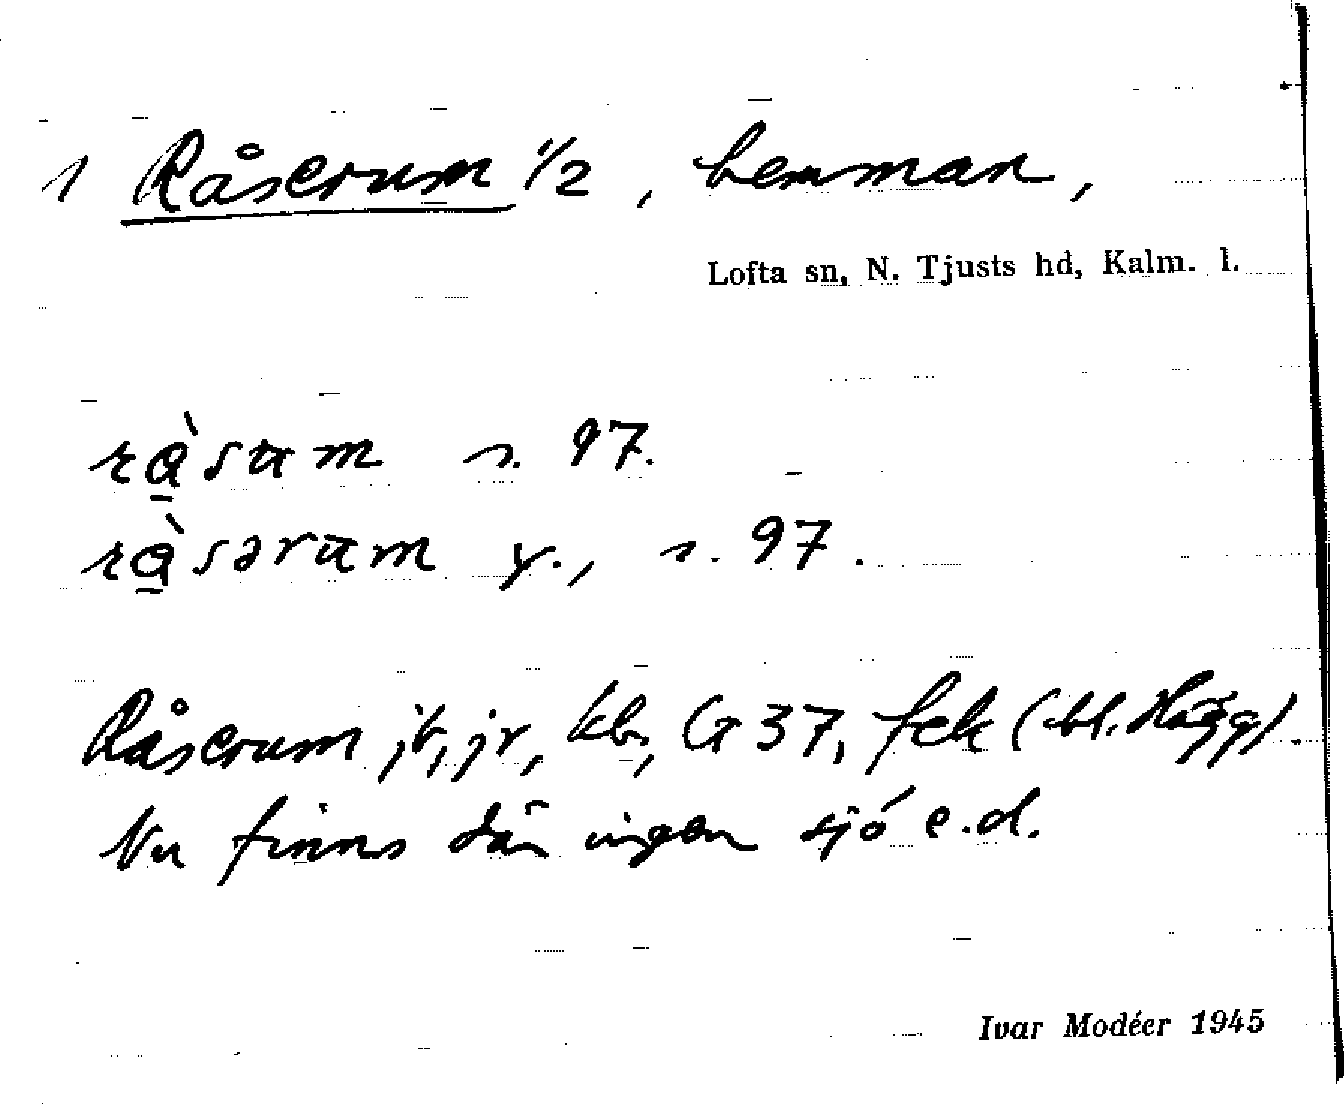 1 Råserum 1/2, hemman,
Lofta sn, N. Tjusts hd, Kalm. l.
rà̱sum s. 97.
rà̱sərum y., s. 97.
Råserum jb, jr, kb, G 37, fek (bl. Hägg).
Nu finns där ingen sjö e.d.
Ivar Modéer 1945